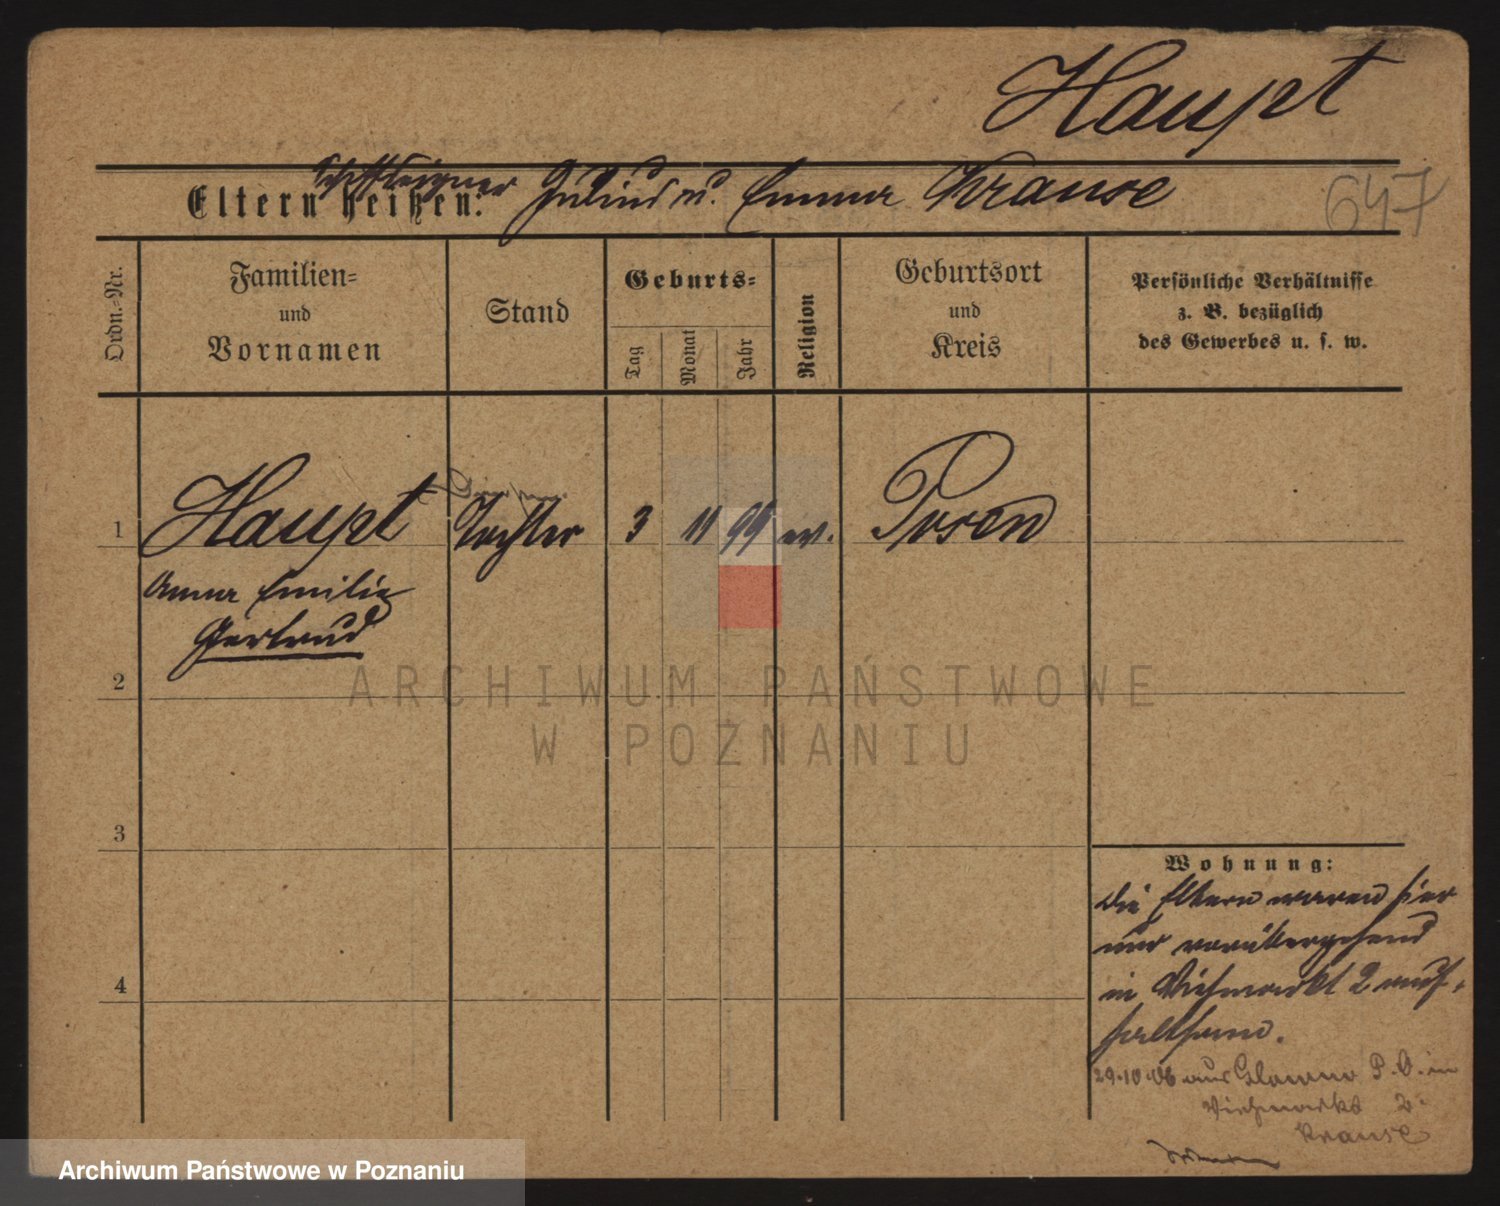 Haupt
Schiffseigner
Eltern heißen: Julius u. Emma Krause
647
Ordn.-Nr.
Familien-
und
Vornamen
Stand
Geburts-
Tag
Monat
Jahr
Religion
Geburtsort
und
Kreis
Persönliche Verhältnisse
z. B. bezüglich
des Gewerbes u. s. w.
1 Haupt Tochter 3 11 99 ev. Posen
Anna Emilie
Gertrud
2
ARCHIWUM PAŃSTWOWE
W POZNANIU
3
4
Wohnung:
Die Eltern waren hier
nur vorübergehend
in Viehmarkt 2 auf-
haltsam.
29.10.06 aus Glowno P. O. in
Viehmarkt 2.
Krause
Archiwum Państwowe w Poznaniu